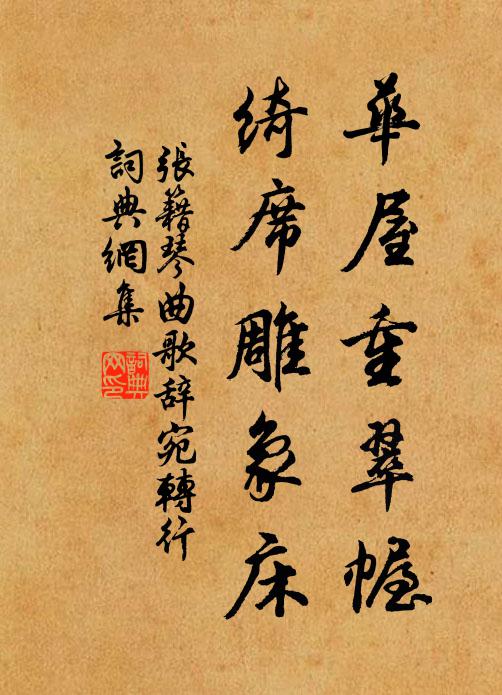 華屋重翠幄
綺席雕象床
張籍琴曲歌辭宛轉行
詞典網集
詞典网印